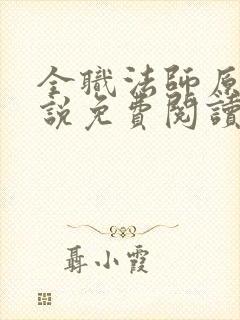 全職法師原
說免費閱讀
聶小霞